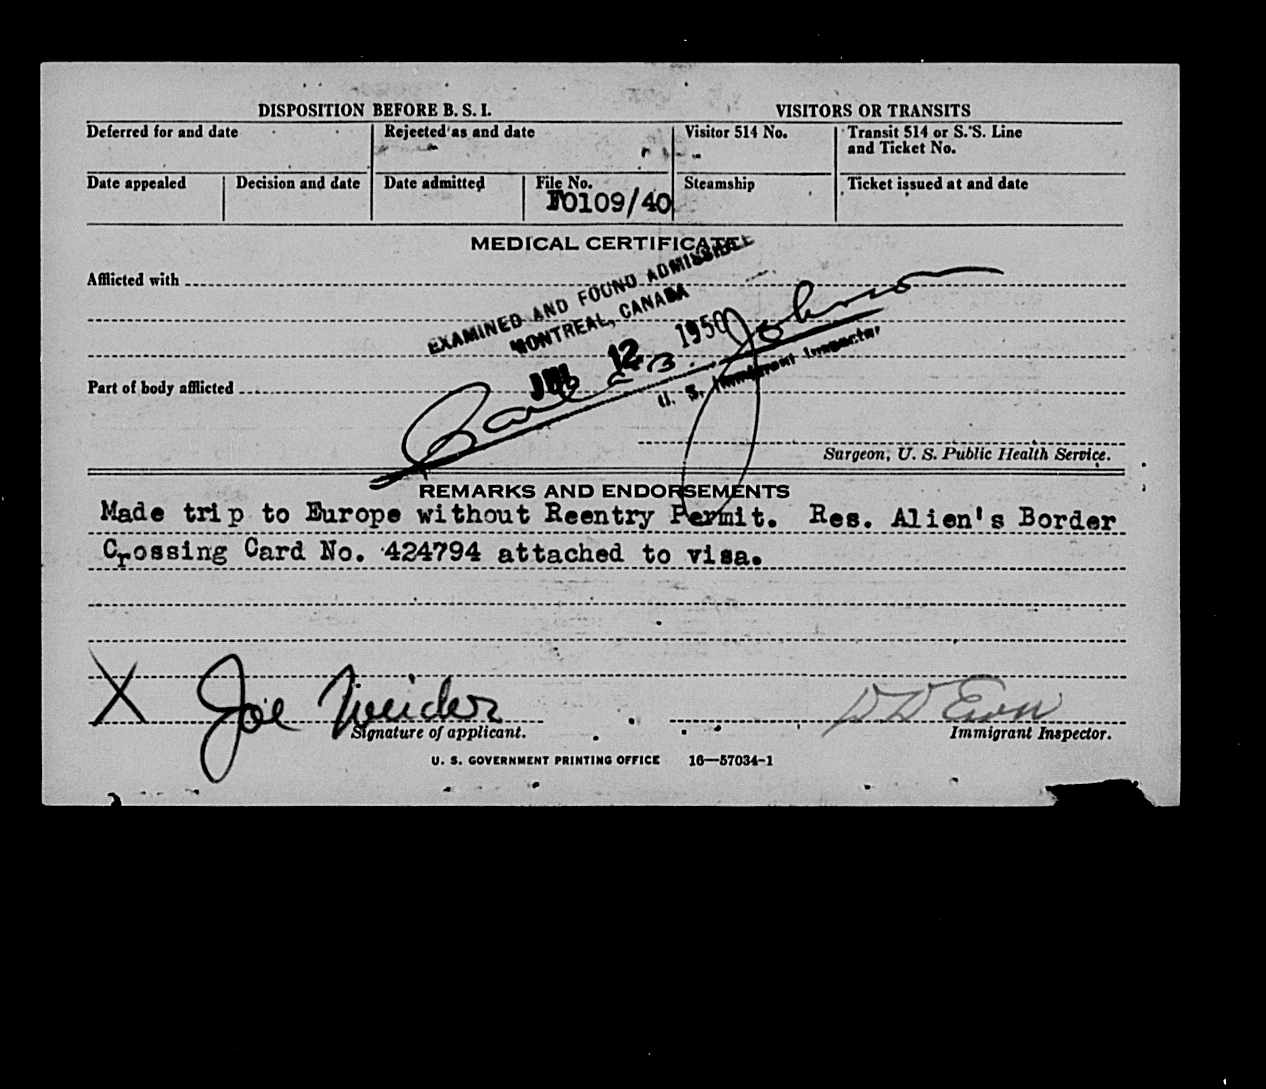 DISPOSITION BEFORE B. S. I.
VISITORS OR TRANSITS
Deferred for and date
Rejected as and date
Visitor 514 No.
Transit 514 or S. S. Line
and Ticket No.
Date appealed
Decision and date
Date admitted
File No.
0109/40
Steamship
Ticket issued at and date
MEDICAL CERTIFICATE
Afflicted with
EXAMINED AND FOUND ADMISSIBLE
MONTREAL, CANADA
12 1950
Carl B. Johnson
U. S. Immigrant Inspector
Part of body afflicted
Surgeon, U. S. Public Health Service.
REMARKS AND ENDORSEMENTS
Made trip to Europe without Reentry Permit. Res. Alien's Border
Crossing Card No. 424794 attached to visa.
X Joe Weider
Signature of applicant.
Immigrant Inspector.
U. S. GOVERNMENT PRINTING OFFICE 16—57034-1